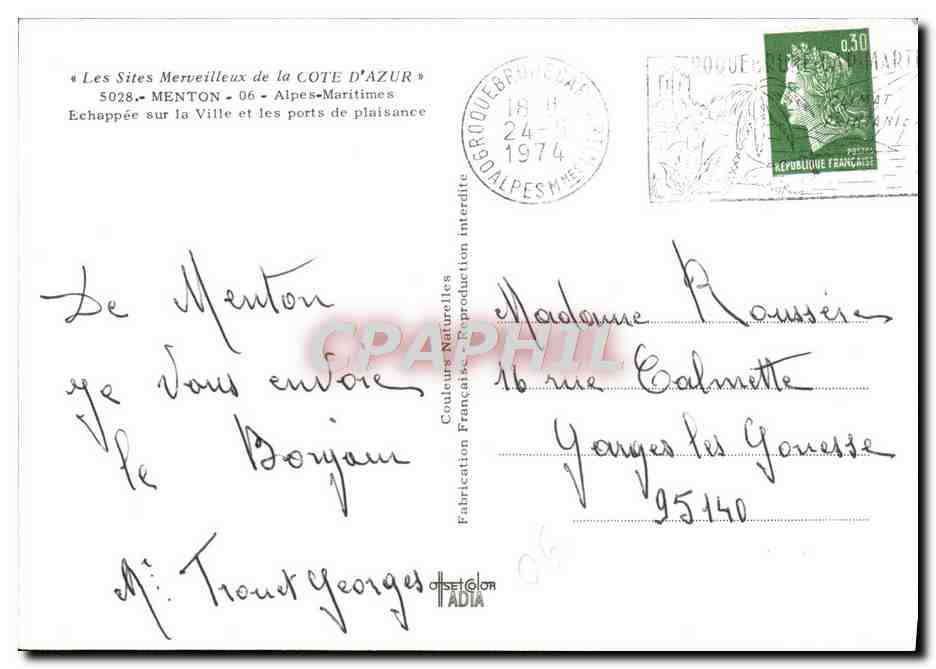 « Les Sites Merveilleux de la COTE D'AZUR »
5028.- MENTON - 06 - Alpes-Maritimes
Echappée sur la Ville et les ports de plaisance
18 H
24-
1974
06 ROQUEBRUNE CAP MARTIN
ALPES Mmes
ROQUEBRUNE CAP MARTI
CLIMAT
0,30
POSTES
RÉPUBLIQUE FRANÇAISE
De Menton
ye Vous envoie
le Bonjour
Mr. Trouet Georges
Couleurs Naturelles
Fabrication Française - Reproduction interdite
Madame Roussére
16 rue Calmette
Garges les Gonesse
95140
06
OFFSET COLOR
ADIA
CPAPHIL